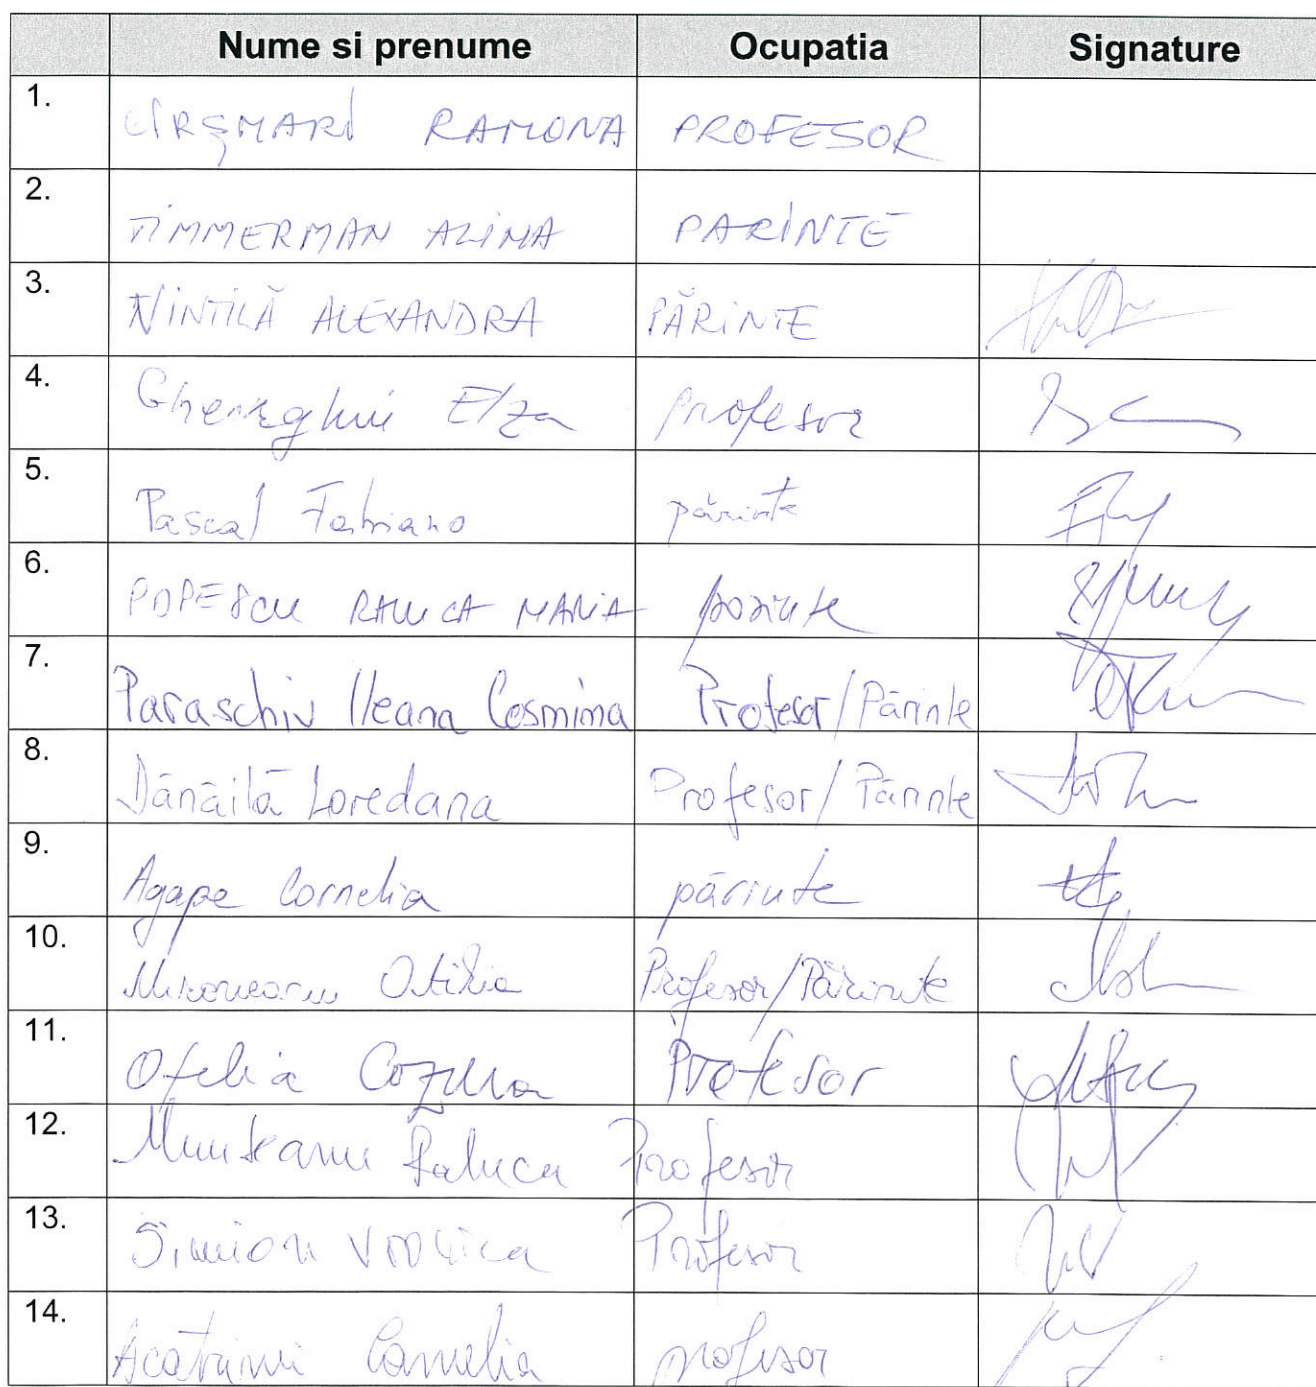 Nume si prenume Ocupatia Signature
1. CÎRȘMARI RAMONA PROFESOR
2. TIMMERMAN ALINA PARINTE
3. NINTILĂ ALEXANDRA PĂRINTE
4. Gheorghui Elza profesor
5. Pascal Fabiano părinte
6. POPESCU RALUCA MARIA părinte
7. Paraschiv Ileana Cosmina Profesor/Părinte
8. Dănăilă Loredana Profesor/Părinte
9. Agape Cornelia părinte
10. Otilia Profesor/Părinte
11. Ofelia Profesor
12. Munteanu Raluca Profesor
13. Simion Profesor
14. Camelia profesor